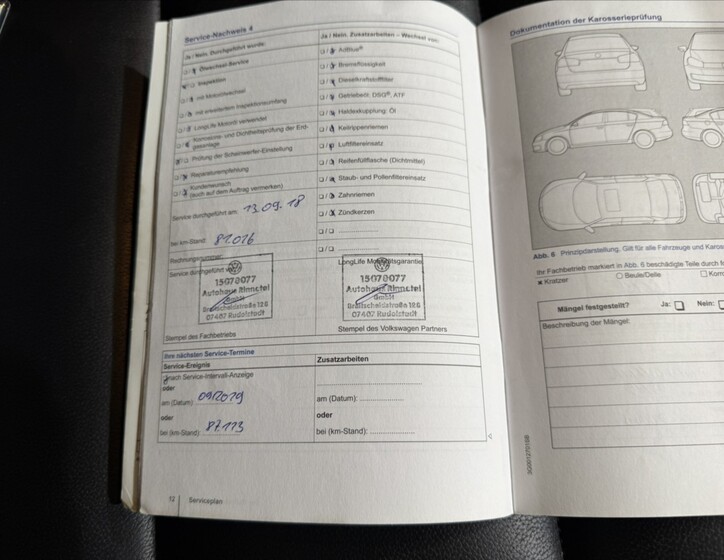 Service-Nachweis 4
Ja / Nein, Durchgeführt wurde:
Ölwechsel-Service
Inspektion
mit Motorölwechsel
mit erweitertem Inspektionsumfang
LongLife Motoröl verwendet
Korrosions- und Dichtheitsprüfung der Erd-
gasanlage
Prüfung der Scheinwerfer-Einstellung
Reparaturempfehlung
Kundenwunsch
(auch auf dem Auftrag vermerken)
Service durchgeführt am: 13.09.18
bei km-Stand: 82026
Rechnungsnummer:
Service durchgeführt
15070077
Autohaus
GmbH
07407 Rudolstadt
Stempel des Fachbetriebs
Ja / Nein, Zusatzarbeiten – Wechsel von:
AdBlue®
Bremsflüssigkeit
Dieselkraftstofffilter
Getriebeöl: DSG®, ATF
Haldexkupplung: Öl
Keilrippenriemen
Luftfiltereinsatz
Reifenfüllflasche (Dichtmittel)
Staub- und Pollenfiltereinsatz
Zahnriemen
Zündkerzen
LongLife Mobilitätsgarantie
15070077
Autohaus
GmbH
07407 Rudolstadt
Stempel des Volkswagen Partners
Ihre nächsten Service-Termine
Service-Ereignis
nach Service-Intervall-Anzeige
oder
am (Datum): 09/2019
oder
bei (km-Stand): 87.113
Zusatzarbeiten
am (Datum):
oder
bei (km-Stand):
12 | Serviceplan
Dokumentation der Karosserieprüfung
Abb. 6 Prinzipdarstellung. Gilt für alle Fahrzeuge und Karos
Ihr Fachbetrieb markiert in Abb. 6 beschädigte Teile durch
Kratzer
Beule/Delle
Mängel festgestellt? Ja: Nein:
Beschreibung der Mängel: